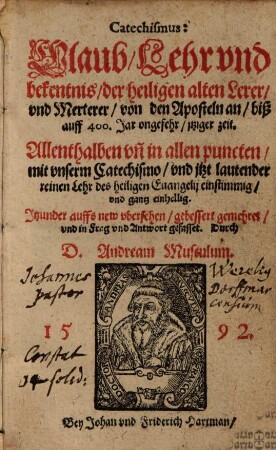 Catechismus:
Glaub/Lehr vnd
bekentnis/der heiligen alten Lerer/
vnd Merterer/ von den Aposteln an/ biß
auff 400. Jar ongefehr/ itziger zeit.
Allenthalben vñ in allen puncten/
mit vnserm Catechismo/ vnd itzt lautender
reinen Lehr des heiligen Euangelij einstimmig/
vnd gantz einhellig.
Itzunder auffs new vbersehen/ gebessert gemehret/
vnd in Frag vnd Antwort gefasset. Durch
D. Andream Musculum.
Johannes
pastor
15 92.
Constat
14 solid:
Bey Johan vnd Friderich Hartman/